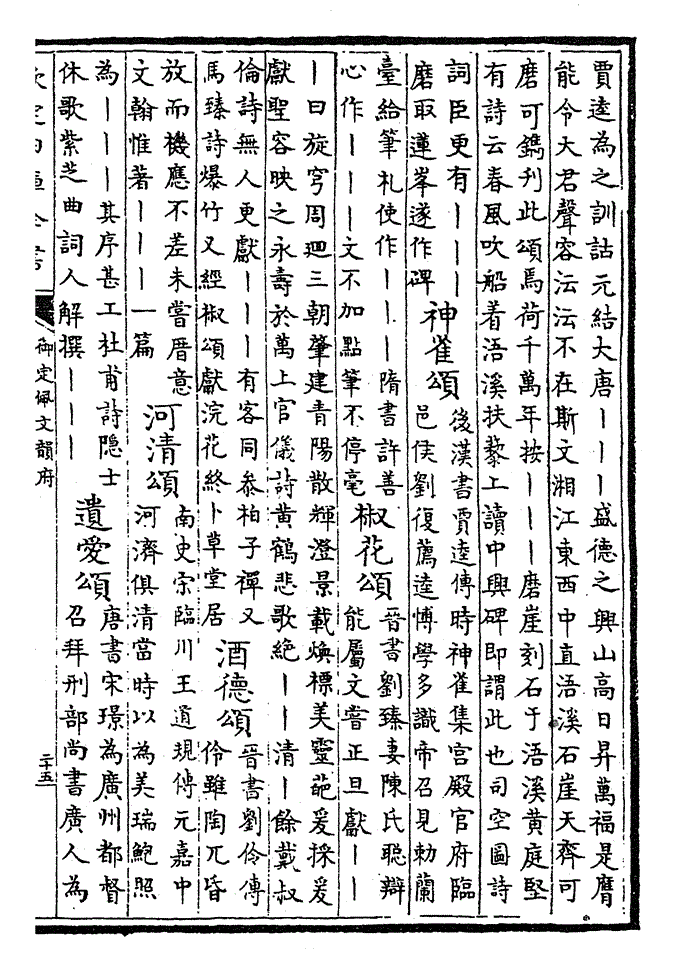 賈逵為之訓詁元結大唐丨丨丨盛德之興山高日昇萬福是膺
能令大君聲容沄沄不在斯文湘江東西中直浯溪石崖天齊可
磨可鐫刋此頌焉荷千萬年按丨丨丨磨崖刻石于浯溪黃庭堅
有詩云春風吹船着浯溪扶藜上讀中興碑即謂此也司空圖詩
詞臣更有丨丨丨
磨取蓮峯遂作碑
神雀頌
後漢書賈逵傳時神雀集宮殿官府臨
邑侯劉復薦逵博學多識帝召見勅蘭
臺給筆札使作丨丨丨隋書許善
心作丨丨丨文不加點筆不停毫
椒花頌
晉書劉臻妻陳氏聰辯
能屬文嘗正旦獻丨丨
丨曰旋穹周廻三朝肇建青陽散輝澄景載煥標美靈葩爰採爰
獻聖容映之永壽於萬上官儀詩黃鶴悲歌絕丨丨清丨餘戴叔
倫詩無人更獻丨丨丨有客同參柏子禪又
馬臻詩爆竹又經椒頌獻浣花終卜草堂居
酒德頌
晉書劉伶傳
伶雖陶兀昏
放而機應不差未嘗厝意
文翰惟著丨丨丨一篇
河清頌
南史宋臨川王道規傳元嘉中
河濟俱清當時以為美瑞鮑照
為丨丨丨其序甚工杜甫詩隐士
休歌紫芝曲詞人解撰丨丨丨
遺愛頌
唐書宋璟為廣州都督
召拜刑部尚書廣人為
欽定四庫全書
御定佩文韻府
二十五